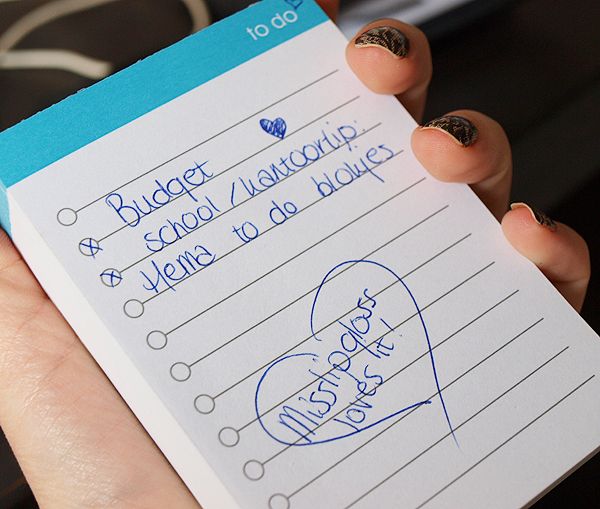 to do
Budget
school/kantoortip:
Hema to do blokjes
Misslipgloss
loves it!